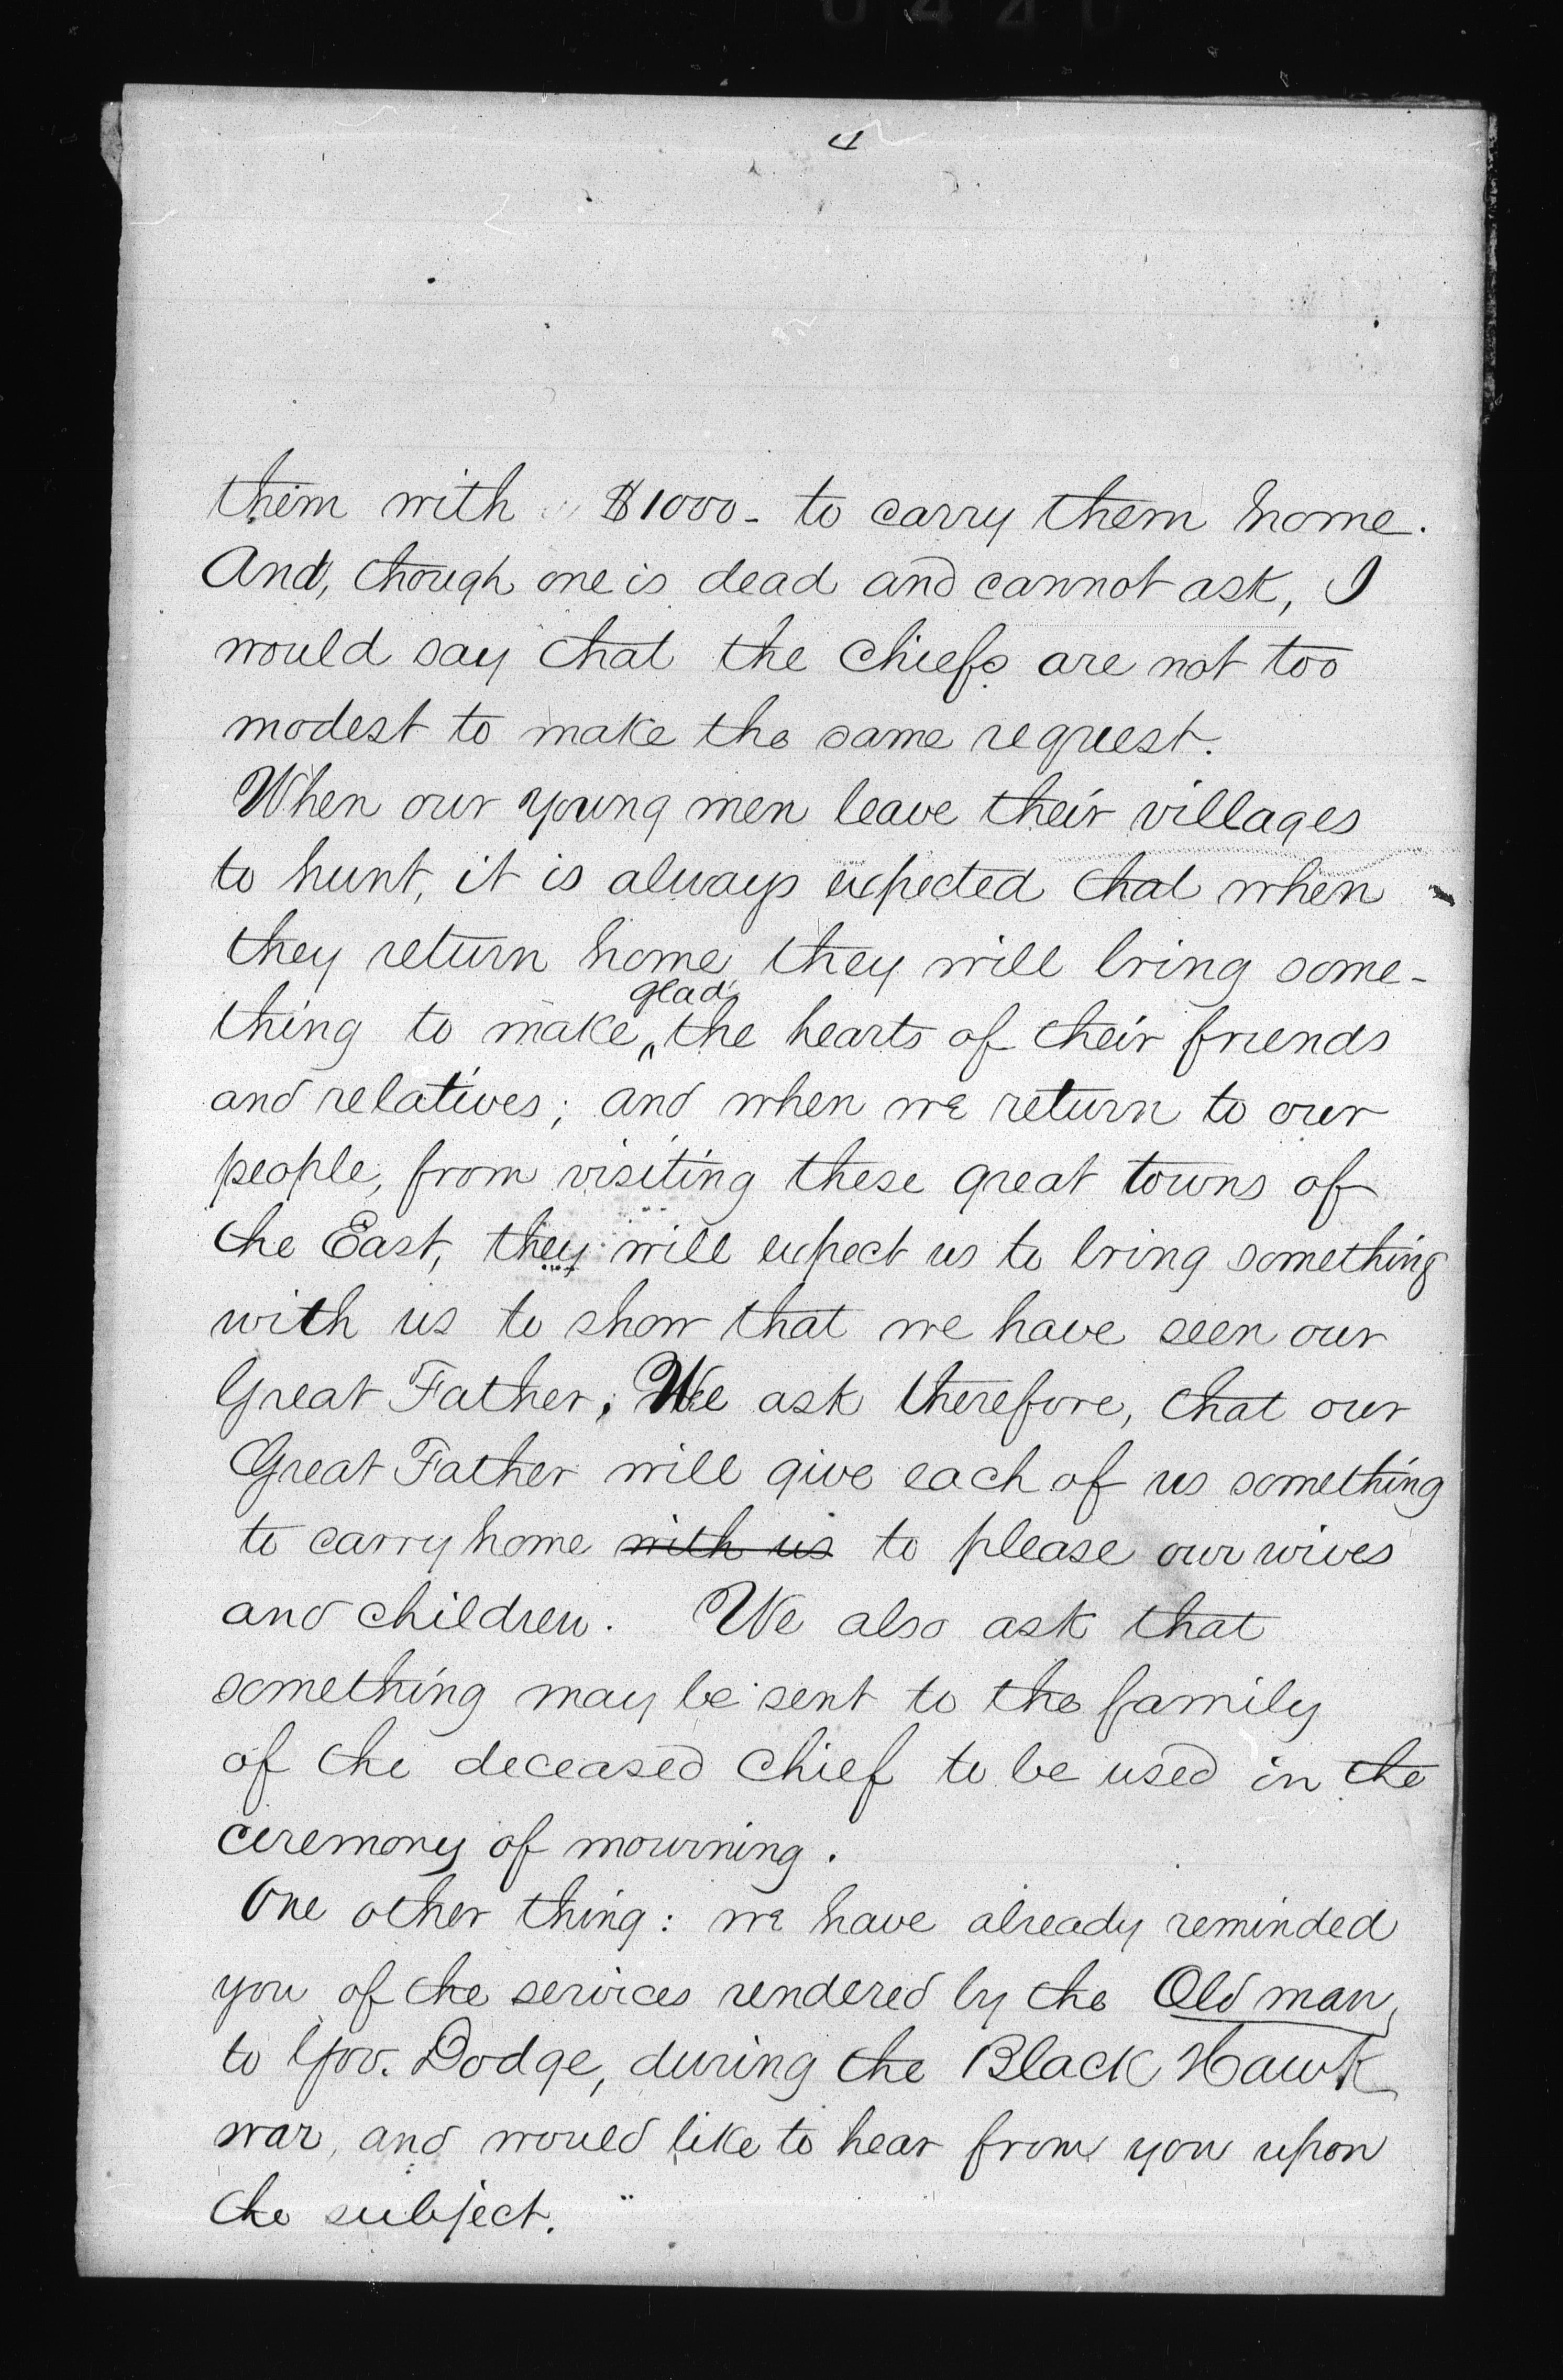 4
them with $1000- to carry them home.
And, though one is dead and cannot ask, I
would say that the chiefs are not too
modest to make the same request.
When our young men leave their villages
to hunt, it is always expected that when
they return home they will bring some-
glad
thing to make ‸ the hearts of their friends
and relatives; and when we return to our
people, from visiting these great towns of
the East, they will expect us to bring something
with us to show that we have seen our
Great Father; We ask therefore, that our
Great Father will give each of us something
to carry home with us to please our wives
and children. We also ask that
something may be sent to the family
of the deceased chief to be used in the
ceremony of mourning.
One other thing: we have already reminded
you of the services rendered by the Old man,
to Gov. Dodge, during the Black Hawk
war, and would like to hear from you upon
the subject.